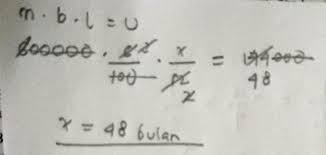 m . b . l = U
800000 . 6 2 / 100 . x / 12 2 = 144000 48
x = 48 bulan